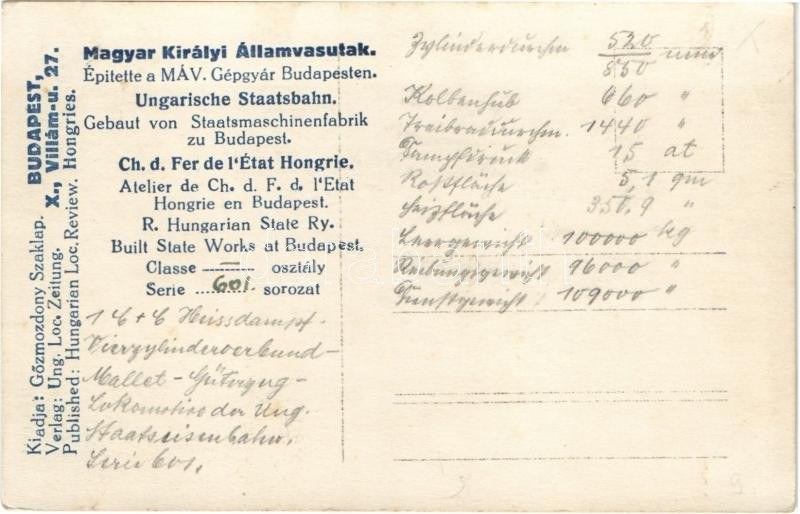 Kiadja: Gőzmozdony Szaklap. BUDAPEST,
Verlag: Ung. Loc. Zeitung. X., Villám-u. 27.
Published: Hungarian Loc. Review. Hongries.
Magyar Királyi Államvasutak.
Épitette a MÁV. Gépgyár Budapesten.
Ungarische Staatsbahn.
Gebaut von Staatsmaschinenfabrik
zu Budapest.
Ch. d. Fer de l'État Hongrie.
Atelier de Ch. d. F. d. l'Etat
Hongrie en Budapest.
R. Hungarian State Ry.
Built State Works at Budapest.
Classe — osztály
Serie 601. sorozat
1 C + C Heissdampf-
Vierzylinderverbund-
Mallet - Güterzug-
Lokomotive der Ung.
Staatseisenbahn.
Serie 601.
Zylinderdurchm 520/850 mm
Kolbenhub 660 "
Treibraddurchm. 1440 "
Dampfdruck 15 at
Rostfläche 5,1 qm
Heizfläche 350,9 "
Leergewicht 100000 kg
Reibungsgewicht 96000 "
Dienstgewicht 109000 "